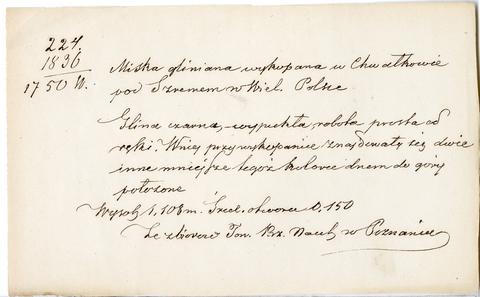 224.
1836
1750 W.
Miska gliniana wykopana w Chwałkowie
pod Szremem w Wiel. Polsce
Glina czarna, wypukła, robota prosta od
ręki. W niej przy wykopanie znajdowały się dwie
inne mniejsze tegoż koloru dnem do góry
położone
Wysok 1,108 m. Śred. otworu 0,150
Ze zbiorów Tow. Prz. Nauk w Poznaniu